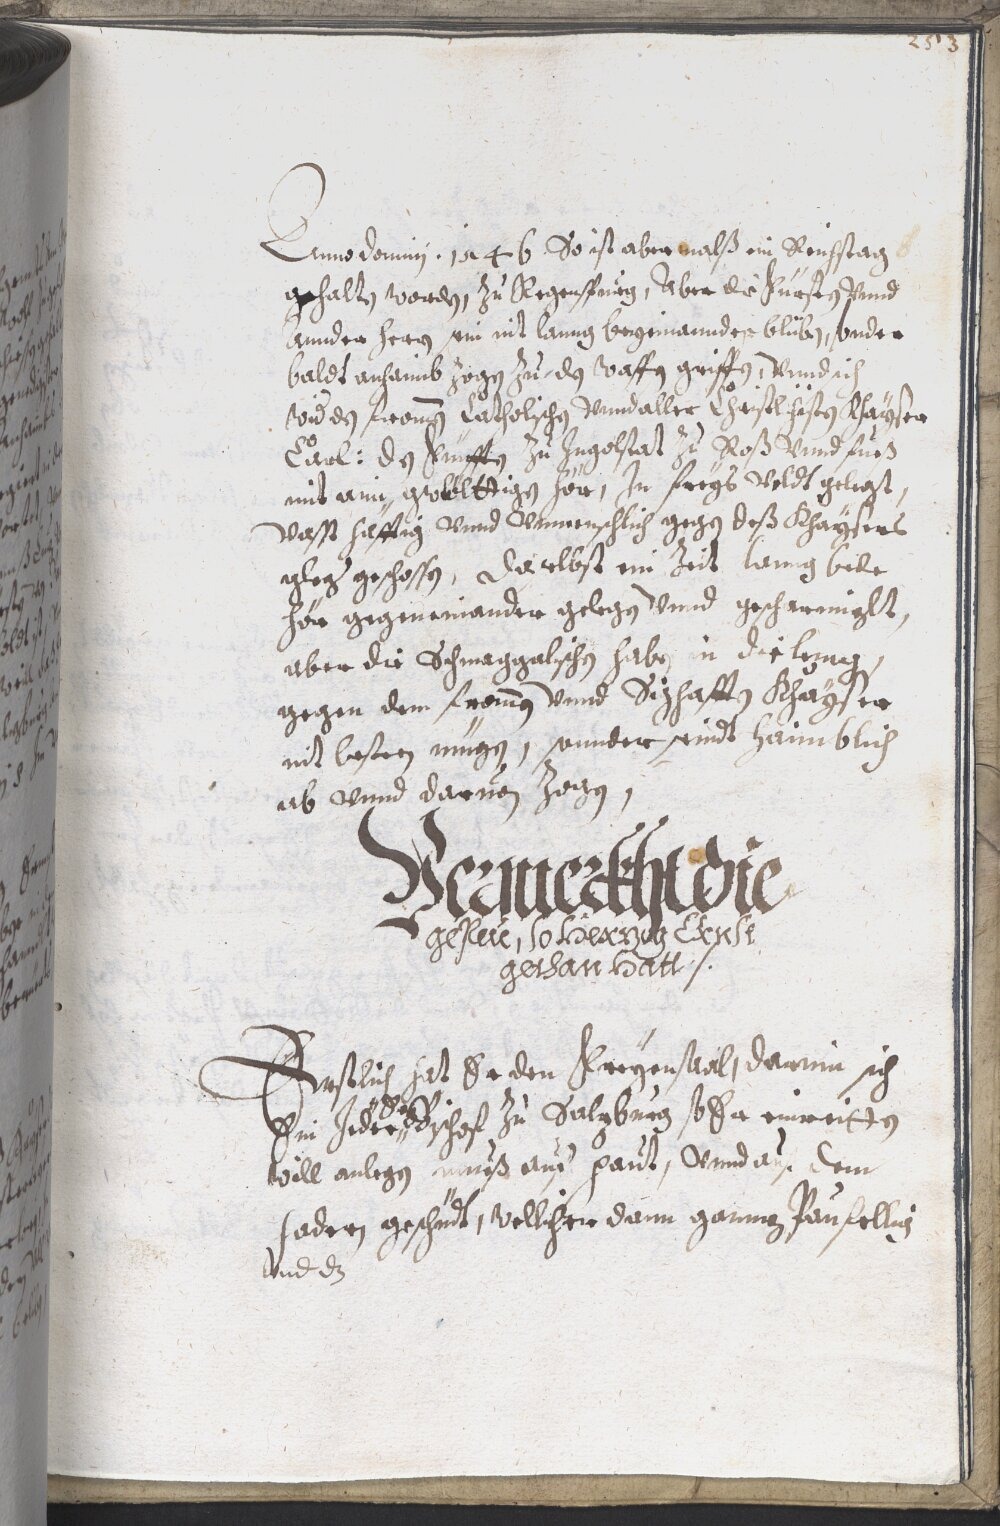 253
Anno dominj . 1546 . So ist abermalß ein Reichstag
gehalten worden, zu Regenspurg, Aber die Fürsten Vnnd
annder herrn sein nit lanng beyeinannder bliben, sonder
baldt anhaimb zogen zu den waffen griffen, Vnnd sich
wider den fromen Catholischen Vnnd aller Christlichisten Khayser
Carl: den Fünfften zu Ingolstat zu Roß Vnnd fueß
mit aim gwelttigen hör, In freys Veldt gelegt,
Vasst häfftig Vnnd Vnmenschlich gegen deß Khaysers
geschossen, Daselbst ein Zeit lanng bede
hör gegeneinander gelegen Vnnd gescharmizlt,
aber die Schmaggalischen haben in die leng,
gegen dem fromen Vnnd Sighafften Khayser
nit besteen mügen, sonnder seindt haimblich
ab Vnnd daruon zogen,
Vermerkht die
gepeue, so Herzog Ernst
gethan hatt /.
Erstlich hat Er den Freyensaal, darinn sich
Ein Jeder Bischof zu Salzburg so Er einreitten
will anlegen mueß auf paut, Vnnd auß dem
federn geschüdt, wellicher dann gannz Paufellig
Vnd dz